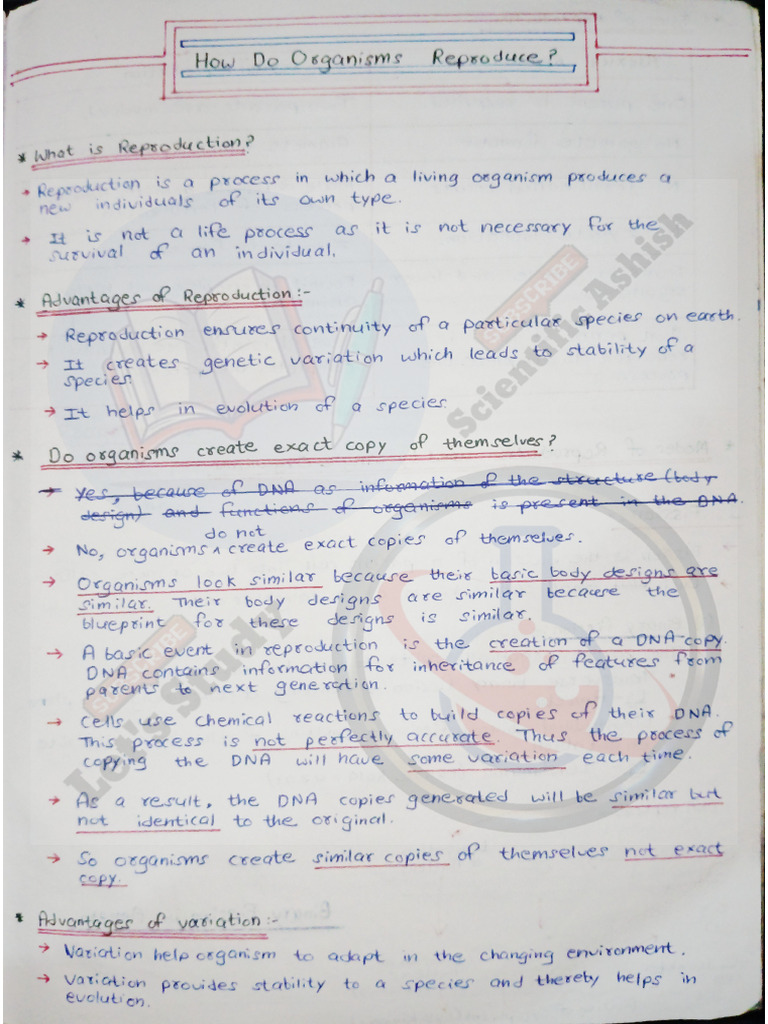 How Do Organisms Reproduce?
* What is Reproduction?
→ Reproduction is a process in which a living organism produces a
new individuals of its own type.
→ It is not a life process as it is not necessary for the
survival of an individual.
* Advantages of Reproduction:-
→ Reproduction ensures continuity of a particular species on earth.
→ It creates genetic variation which leads to stability of a
species.
→ It helps in evolution of a species.
* Do organisms create exact copy of themselves?
→ Yes, because of DNA as information of the structure (body
design) and functions of organisms is present in the DNA.
do not
→ No, organisms ^ create exact copies of themselves.
→ Organisms look similar because their basic body designs are
similar. Their body designs are similar because the
blueprint for these designs is similar.
→ A basic event in reproduction is the creation of a DNA copy.
DNA contains information for inheritance of features from
parents to next generation.
→ Cells use chemical reactions to build copies of their DNA.
This process is not perfectly accurate. Thus the process of
copying the DNA will have some variation each time.
→ As a result, the DNA copies generated will be similar but
not identical to the original.
→ So organisms create similar copies of themselves not exact
copy.
* Advantages of variation:-
→ Variation help organism to adapt in the changing environment.
→ Variation provides stability to a species and thereby helps in
evolution.
Let's Study
SUBSCRIBE
Scientific Ashish
SUBSCRIBE